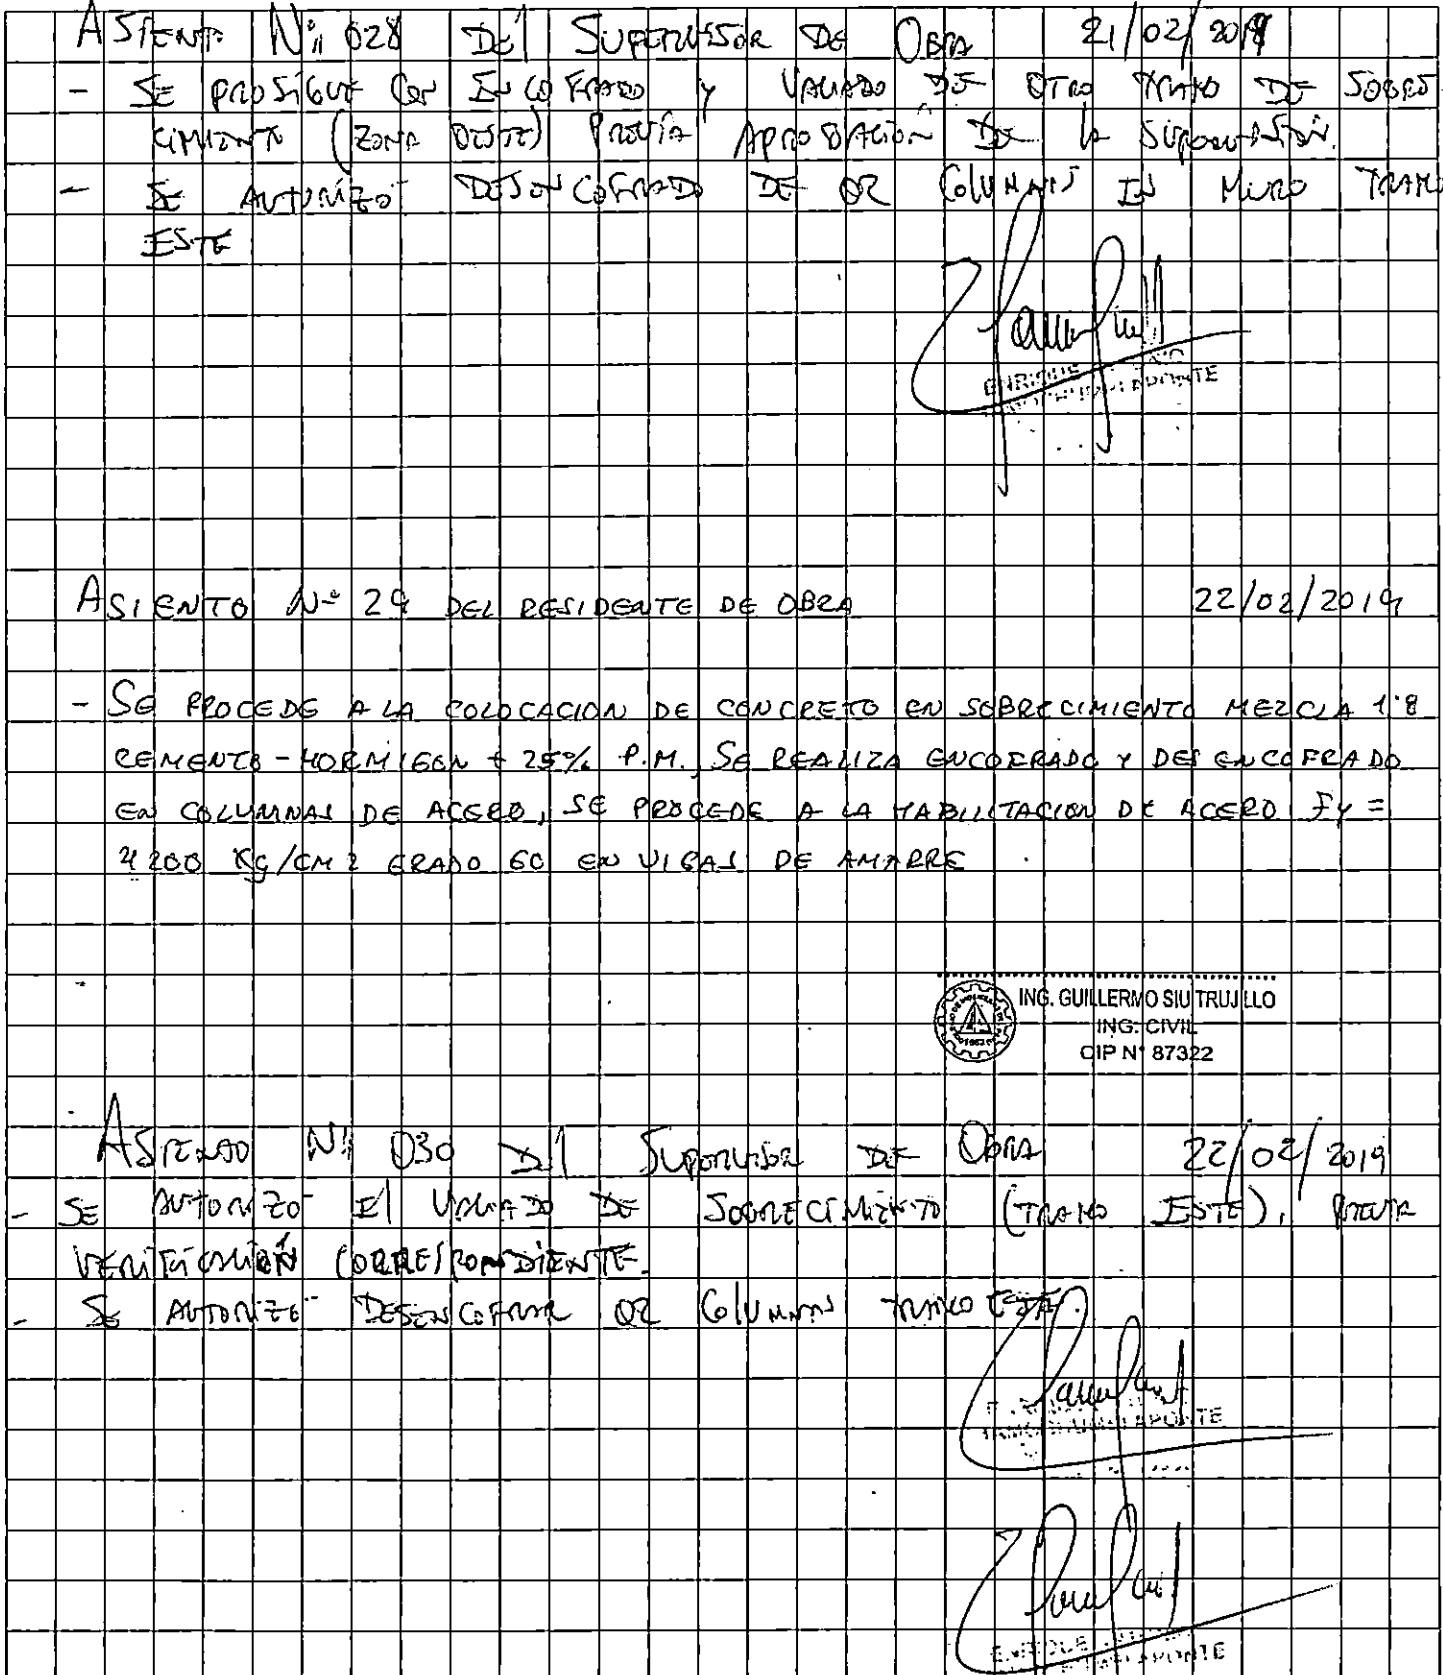 ASIENTO Nº 028 DEL SUPERVISOR DE OBRA 21/02/2019
- SE PROSIGUE CON ENCOFRADO Y VACIADO DE OTRO TRAMO DE SOBRE
CIMIENTO (ZONA OESTE) PREVIA APROBACIÓN DE LA SUPERVISIÓN.
- SE AUTORIZÓ DESENCOFRADO DE 02 COLUMNAS EN MURO TRAMO
ESTE
ENRIQUE
APONTE
ASIENTO Nº 29 DEL RESIDENTE DE OBRA 22/02/2019
- SE PROCEDE A LA COLOCACION DE CONCRETO EN SOBRECIMIENTO MEZCLA 1:8
CEMENTO - HORMIGON + 25% P.M. SE REALIZA ENCOFRADO Y DESENCOFRADO
EN COLUMNAS DE ACERO, SE PROCEDE A LA HABILITACION DE ACERO FY =
4200 KG/CM2 GRADO 60 EN VIGAS DE AMARRE
ING. GUILLERMO SIU TRUJILLO
ING. CIVIL
CIP N° 87322
ASIENTO Nº 030 DEL SUPERVISOR DE OBRA 22/02/2019
- SE AUTORIZÓ EL VACIADO DE SOBRECIMIENTO (TRAMO ESTE), PREVIA
VERIFICACIÓN CORRESPONDIENTE.
- SE AUTORIZÓ DESENCOFRAR 02 COLUMNAS TRAMO ESTE.
APONTE
ENRIQUE
APONTE